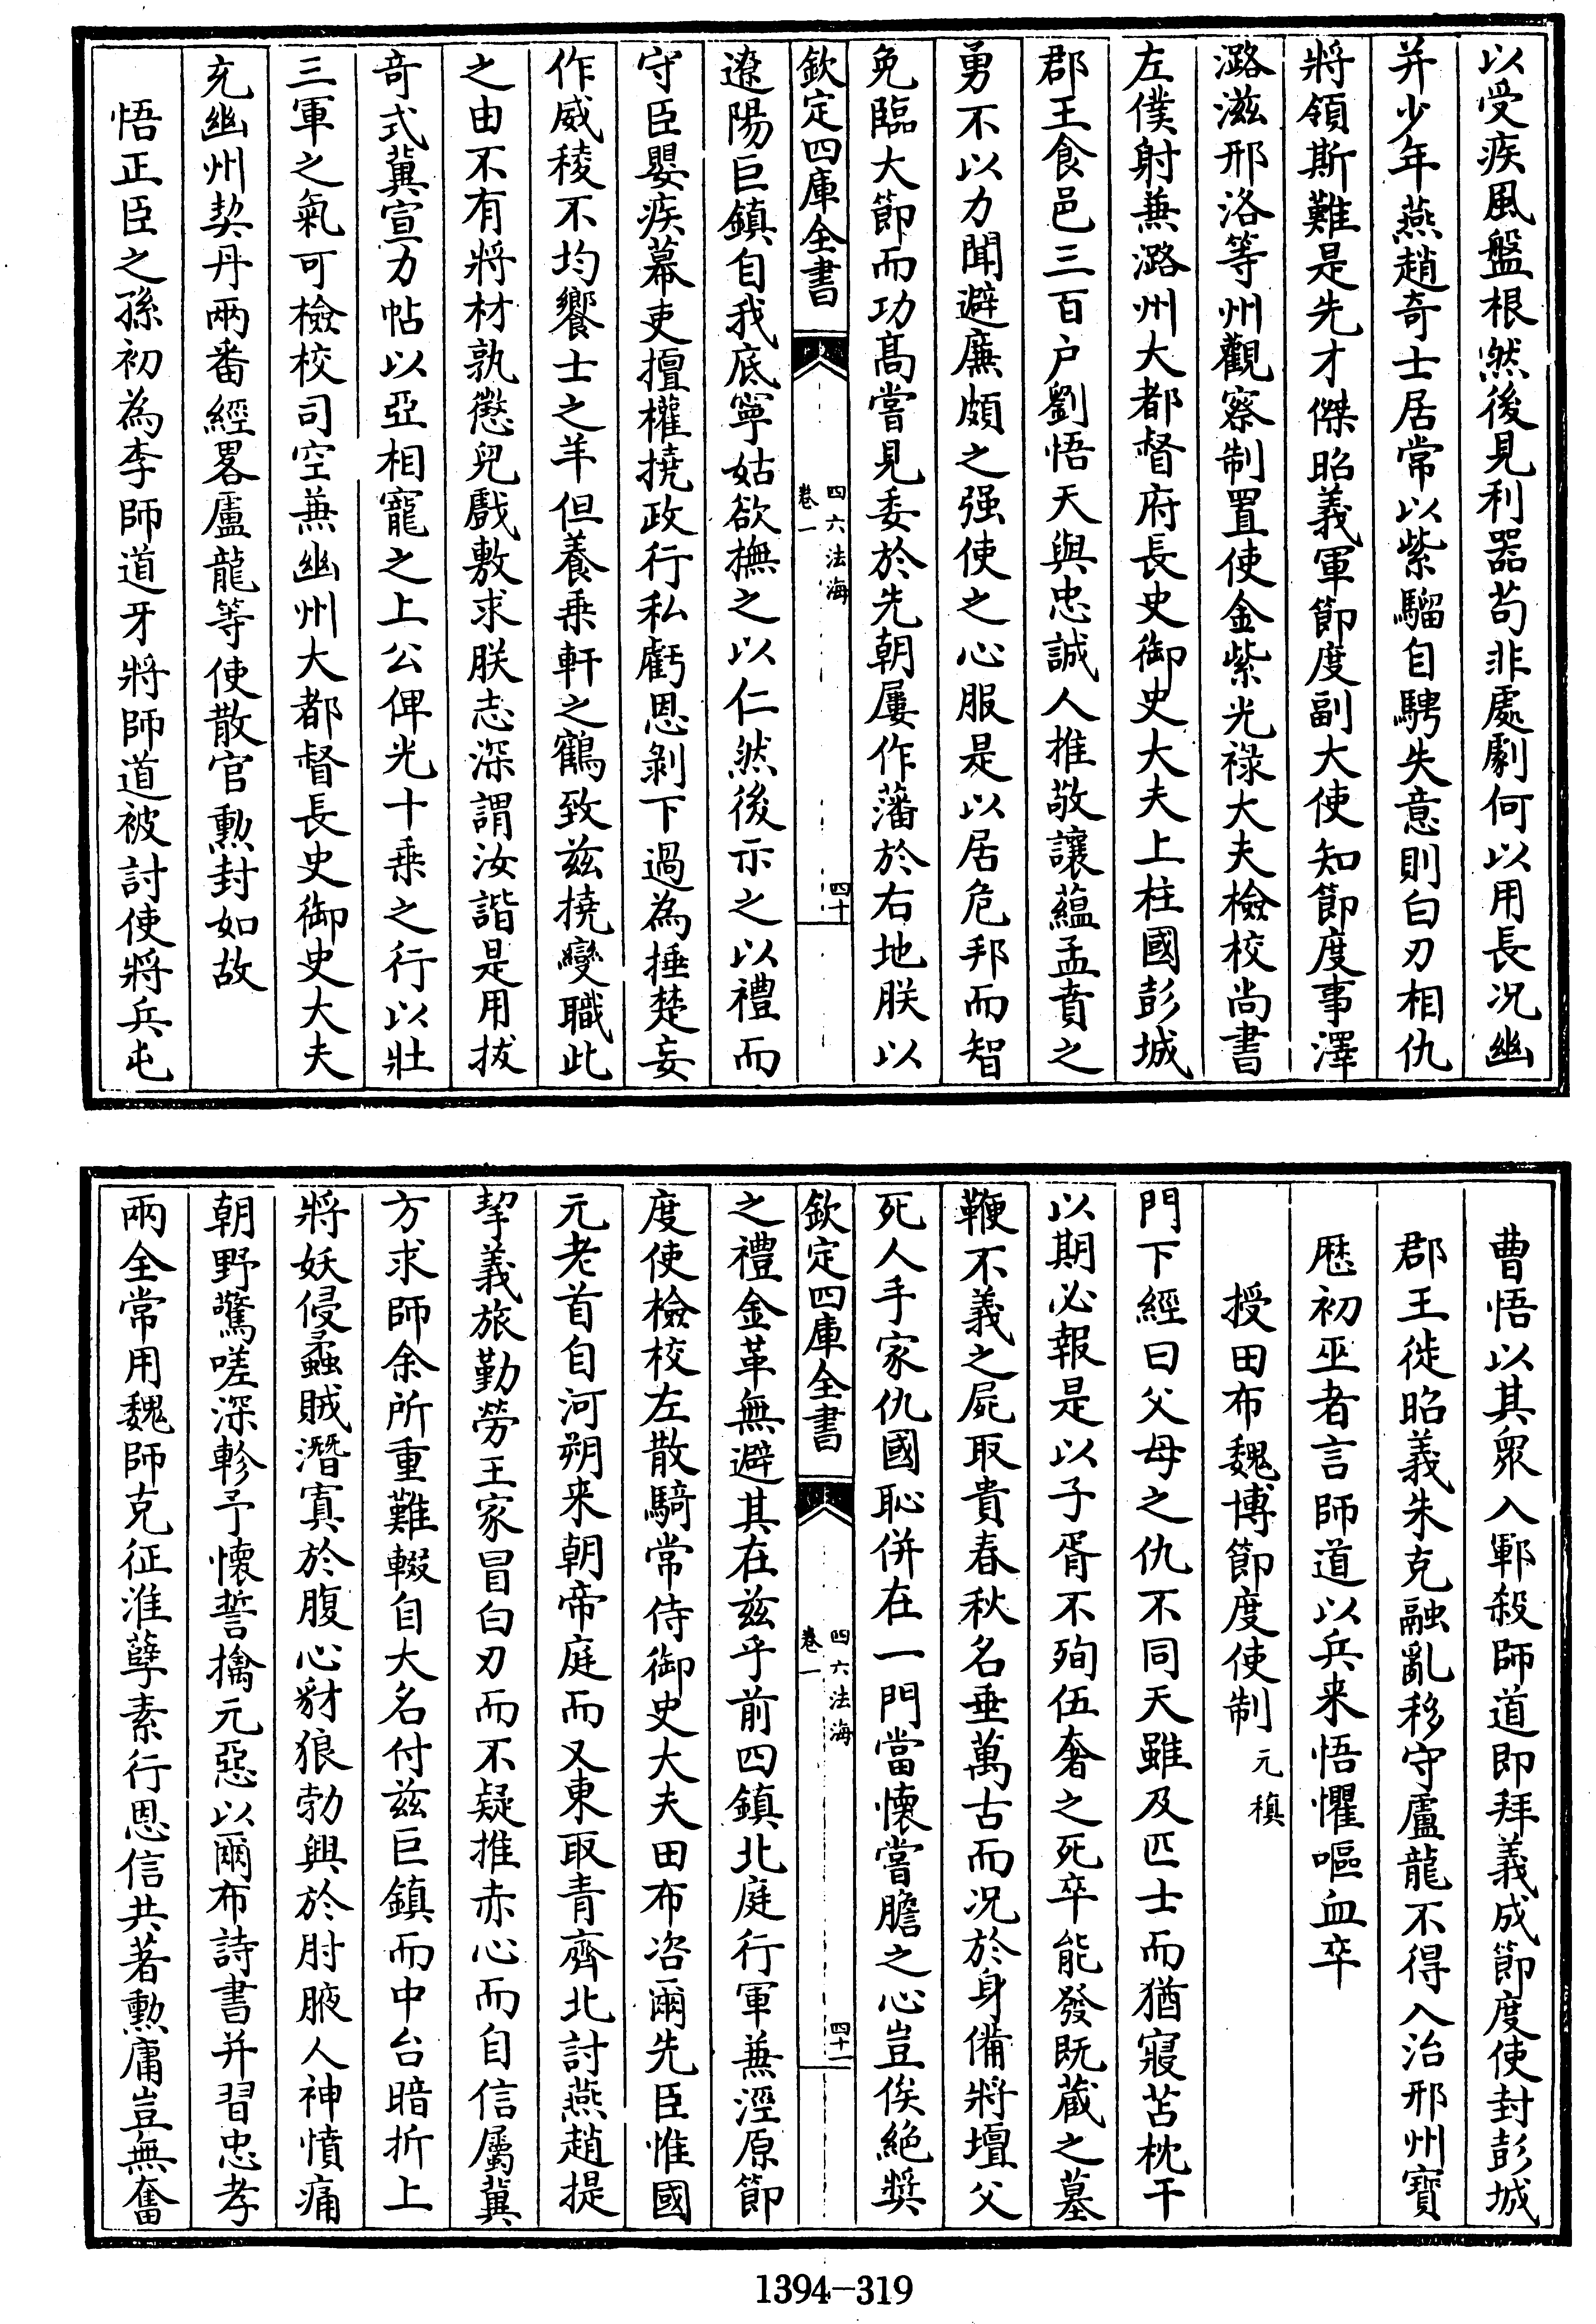 以受疾風盤根然後見利器茍非處劇何以用長况幽
并少年燕趙奇士居常以紫騮自騁失意則白刃相仇
將領斯難是先才傑昭義軍節度副大使知節度事澤
潞滋邢洛等州觀察制置使金紫光祿大夫檢校尚書
左僕射兼潞州大都督府長史御史大夫上柱國彭城
郡王食邑三百户劉悟天與忠誠人推敬讓蘊孟賁之
勇不以力聞避廉頗之强使之心服是以居危邦而智
免臨大節而功髙嘗見委於先朝屢作藩於右地朕以
欽定四庫全書
四六法海
卷一
四十
遼陽巨鎮自我底寧姑欲撫之以仁然後示之以禮而
守臣嬰疾幕吏擅權撓政行私虧恩剝下過為捶楚妄
作威稜不均饗士之羊但養乘軒之鶴致兹撓變職此
之由不有將材孰懲兒戲敷求朕志深謂汝諧是用拔
竒式冀宣力帖以亞相寵之上公俾光十乘之行以壯
三軍之氣可檢校司空兼幽州大都督長史御史大夫
充幽州契丹兩番經畧盧龍等使散官勲封如故
悟正臣之孫初為李師道牙將師道被討使將兵屯
曹悟以其衆入鄆殺師道即拜義成節度使封彭城
郡王徙昭義朱克融亂移守盧龍不得入治邢州寳
厯初巫者言師道以兵来悟懼嘔血卒
授田布魏博節度使制 元稹
門下經曰父母之仇不同天雖及匹士而猶寢苫枕干
以期必報是以子胥不殉伍奢之死卒能發既蔵之墓
鞭不義之屍取貴春秋名垂萬古而况於身備將壇父
死人手家仇國恥併在一門當懐嘗膽之心豈俟絶奬
欽定四庫全書
四六法海
卷一
四十一
之禮金革無避其在兹乎前四鎮北庭行軍兼涇原節
度使檢校左散騎常侍御史大夫田布咨爾先臣惟國
元老首自河朔来朝帝庭而又東取青齊北討燕趙提
挈義旅勤勞王家冒白刃而不疑推赤心而自信屬冀
方求師余所重難輟自大名付兹巨鎮而中台暗折上
將妖侵蟊賊潛寘於腹心豺狼勃興於肘腋人神憤痛
朝野驚嗟深軫予懐誓擒元惡以爾布詩書并習忠孝
兩全常用魏師克征淮孽素行恩信共著勲庸豈無奮
1394-319